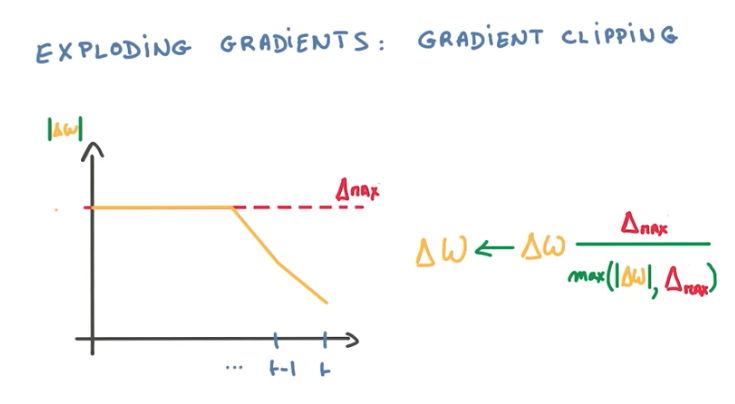 EXPLODING GRADIENTS: GRADIENT CLIPPING
|ΔW|
Δmax
ΔW ← ΔW Δmax
max(|ΔW|, Δmax)
... t-1 t